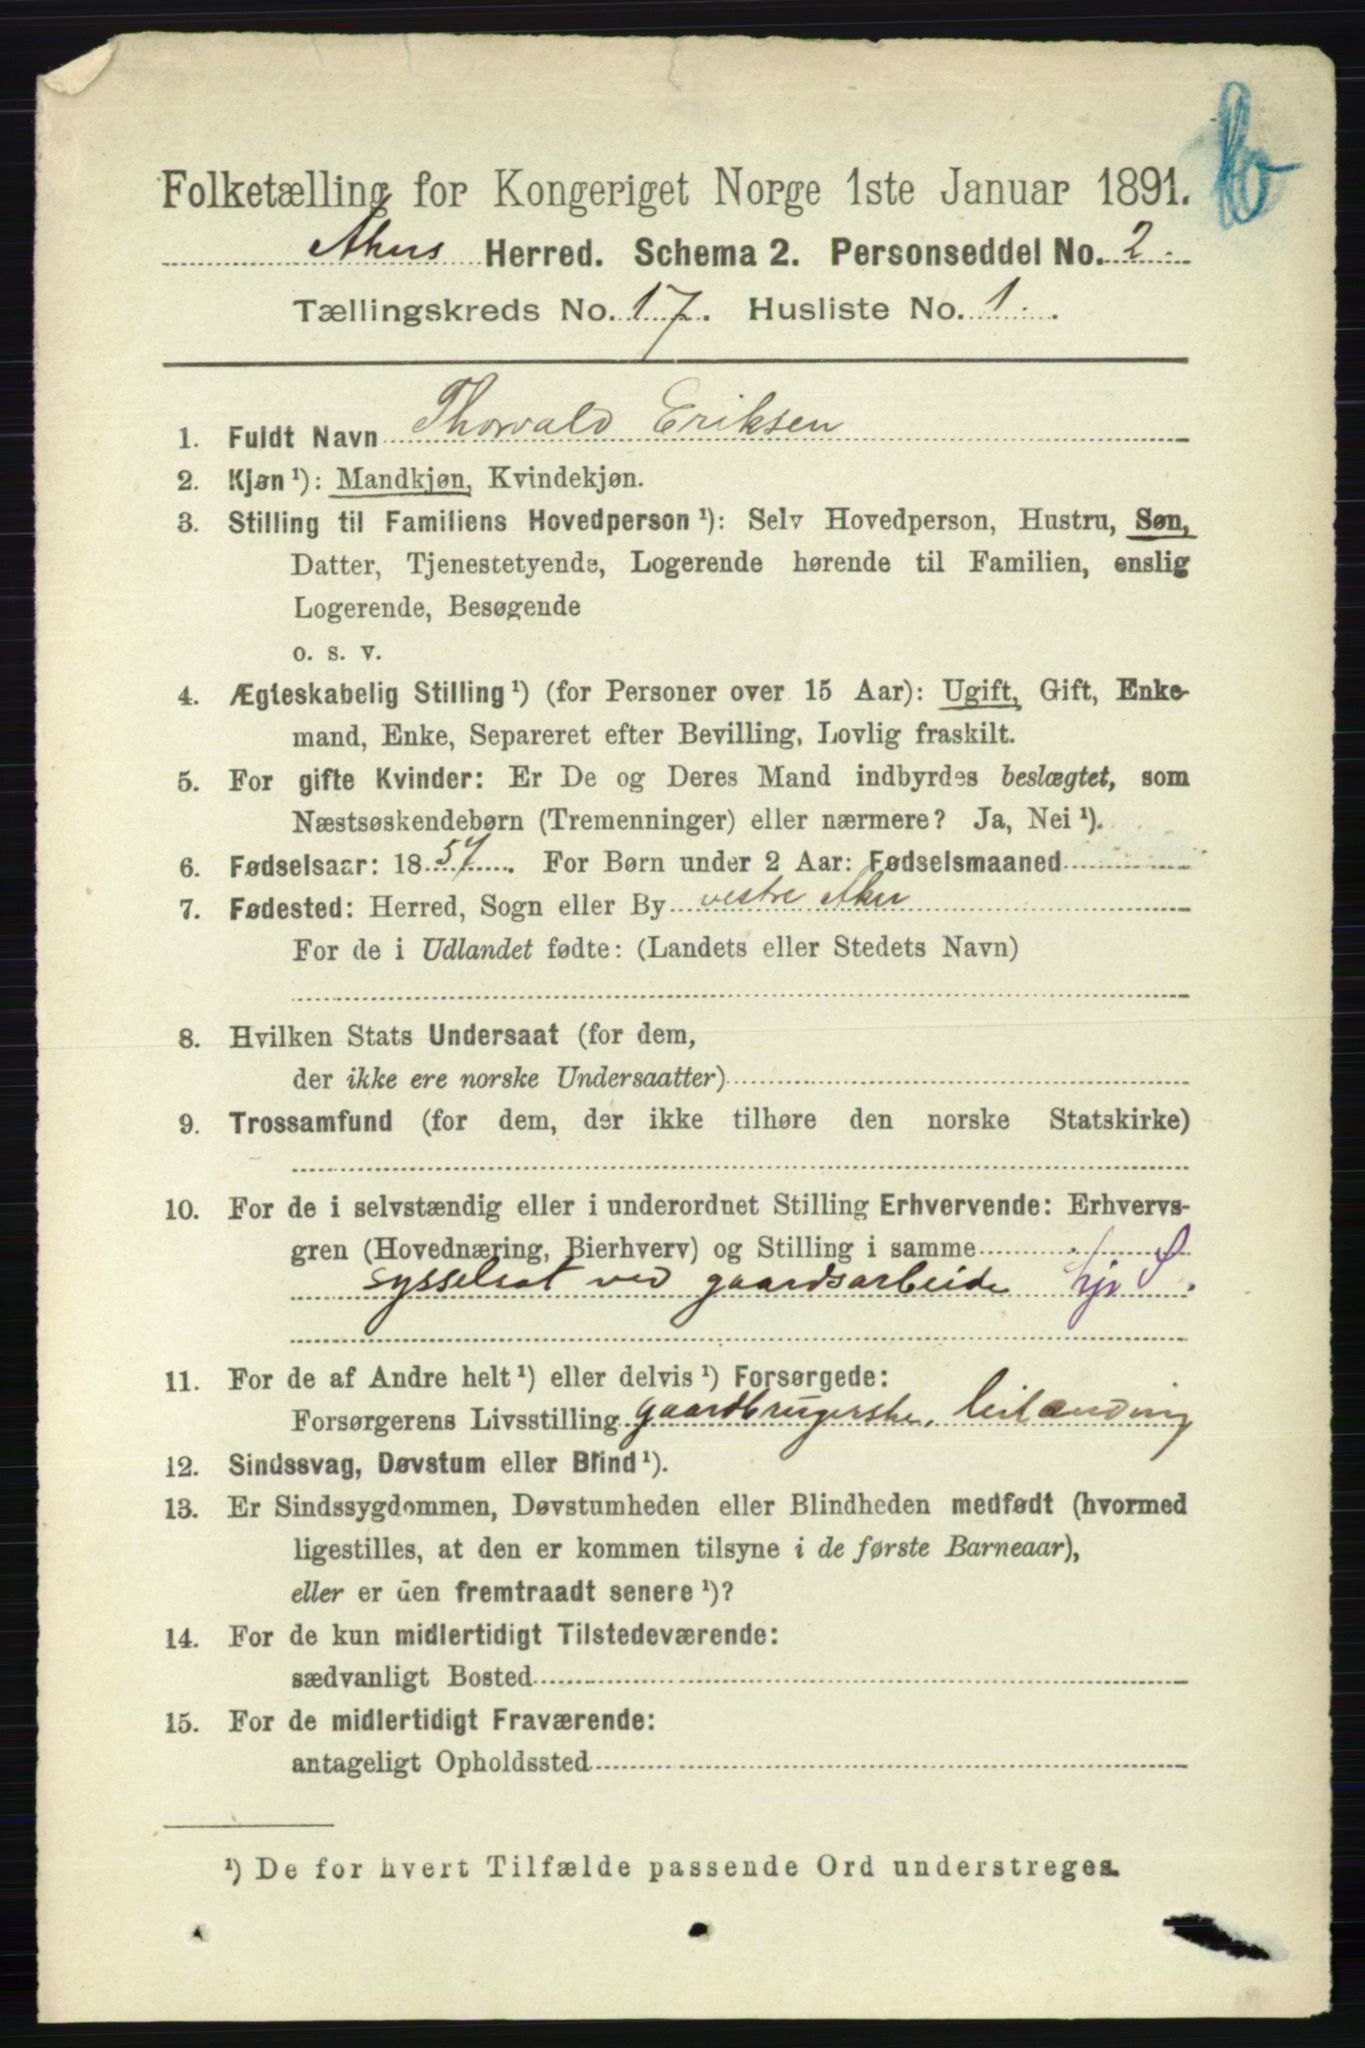 Folketælling for Kongeriget Norge 1ste Januar 1891.
Akers Herred. Schema 2. Personseddel No. 2
Tællingskreds No. 17. Husliste No. 1.
1. Fuldt Navn Thorvald Eriksen
2. Kjøn ¹): Mandkjøn, Kvindekjøn.
3. Stilling til Familiens Hovedperson ¹): Selv Hovedperson, Hustru, Søn,
Datter, Tjenestetyende, Logerende hørende til Familien, enslig
Logerende, Besøgende
o. s. v.
4. Ægteskabelig Stilling ¹) (for Personer over 15 Aar): Ugift, Gift, Enke-
mand, Enke, Separeret efter Bevilling, Lovlig fraskilt.
5. For gifte Kvinder: Er De og Deres Mand indbyrdes beslægtet, som
Næstsøskendebørn (Tremenninger) eller nærmere? Ja, Nei ¹).
6. Fødselsaar: 1857. For Børn under 2 Aar: Fødselsmaaned
7. Fødested: Herred, Sogn eller By vestre Aker
For de i Udlandet fødte: (Landets eller Stedets Navn)
8. Hvilken Stats Undersaat (for dem,
der ikke ere norske Undersaatter)
9. Trossamfund (for dem, der ikke tilhøre den norske Statskirke)
10. For de i selvstændig eller i underordnet Stilling Erhvervende: Erhvervs-
gren (Hovednæring, Bierhverv) og Stilling i samme
sysselsat ved gaardsarbeide hjS.
11. For de af Andre helt ¹) eller delvis ¹) Forsørgede:
Forsørgerens Livsstilling gaardbrugerske, leilending
12. Sindssvag, Døvstum eller Blind ¹).
13. Er Sindssygdommen, Døvstumheden eller Blindheden medfødt (hvormed
ligestilles, at den er kommen tilsyne i de første Barneaar),
eller er den fremtraadt senere ¹)?
14. For de kun midlertidigt Tilstedeværende:
sædvanligt Bosted
15. For de midlertidigt Fraværende:
antageligt Opholdssted
¹) De for hvert Tilfælde passende Ord understreges.